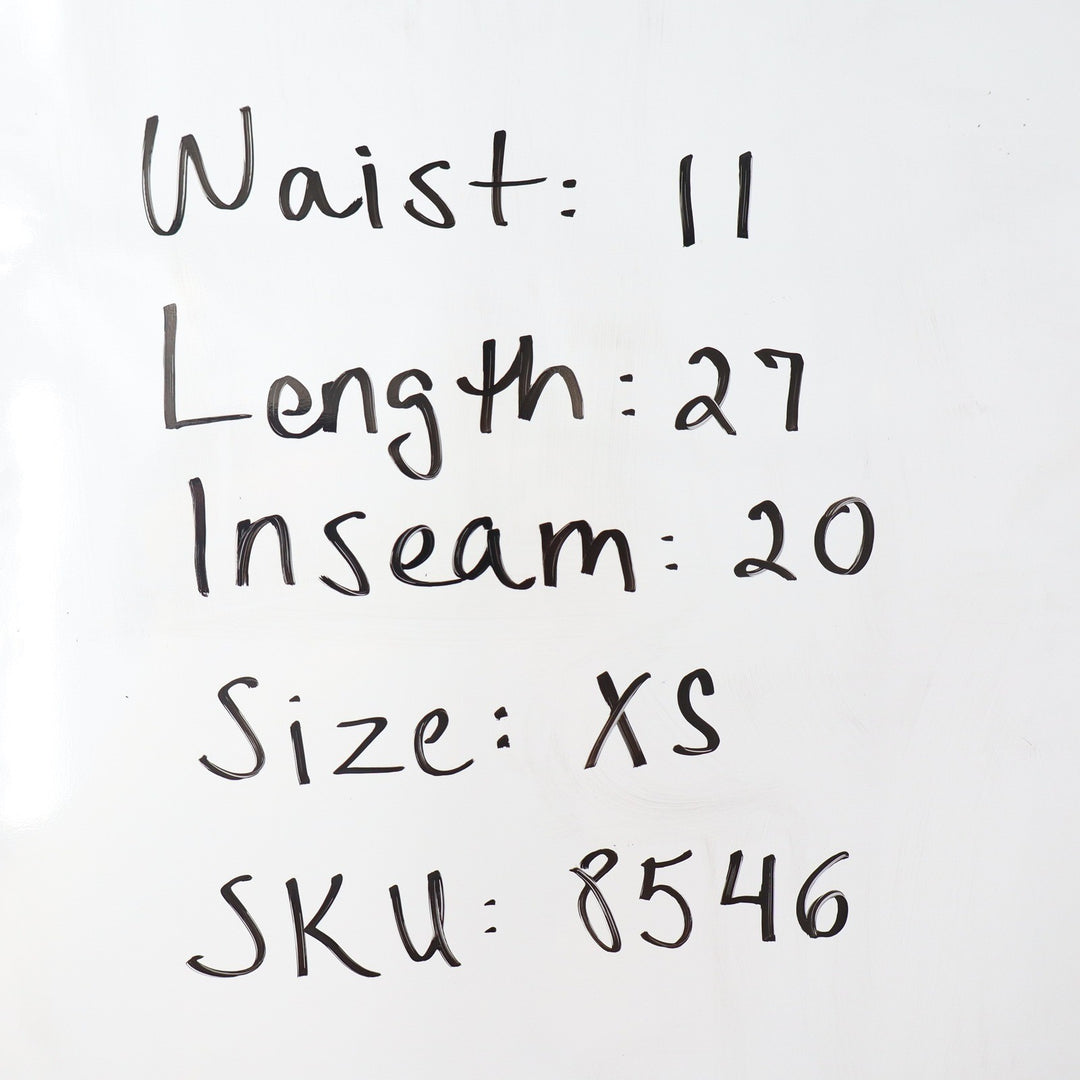 Waist: 11
Length: 27
Inseam: 20
Size: XS
SKU: 8546